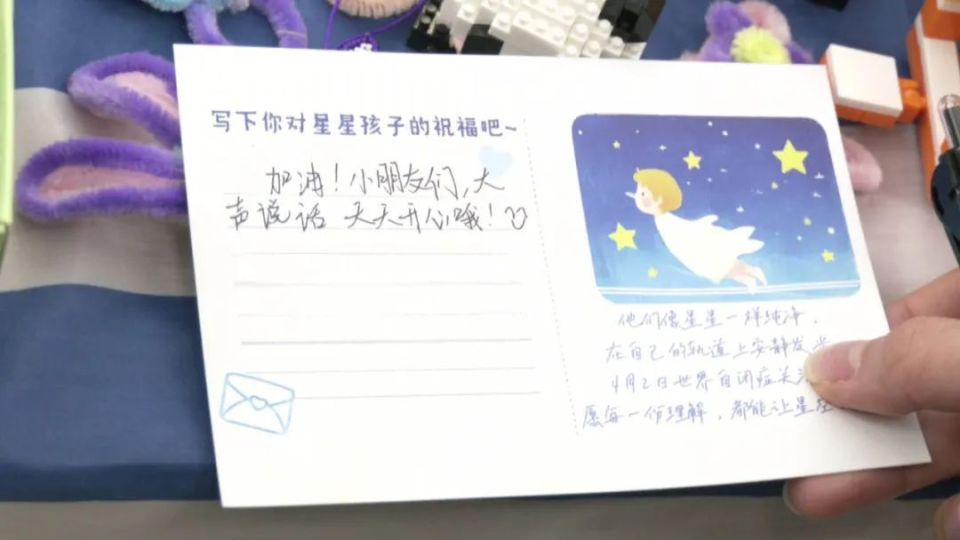 写下你对星星孩子的祝福吧~
加油！小朋友们，大
声说话 天天开心哦！
他们像星星一样纯净，
在自己的轨道上安静发光
4月2日世界自闭症关
愿每一份理解，都能让星